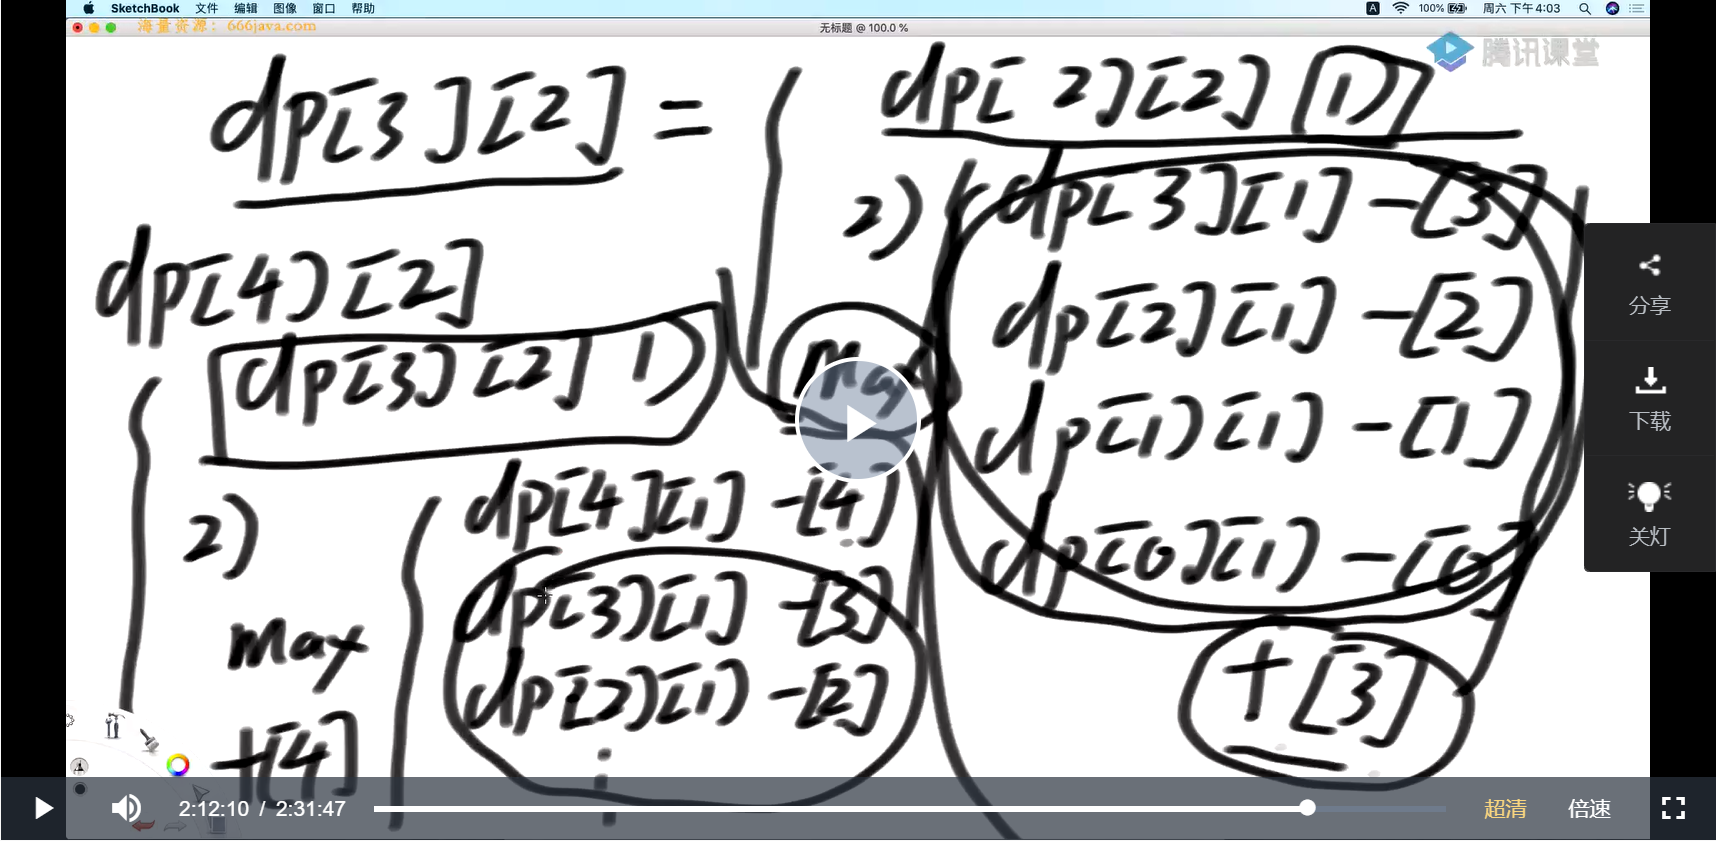 SketchBook 文件 编辑 图像 窗口 帮助
A 100% 周六 下午4:03
海量资源：666java.com
无标题 @ 100.0 %
腾讯课堂
dp[3][2] =
dp[2][2] 1)
2)
dp[3][1] -[3]
dp[2][1] -[2]
dp[1)[1] -[1]
dp[0][1) -[0]
max
+[3]
dp[4)[2]
dp[3][2] 1)
2)
max
+[4]
dp[4][1] -[4]
dp[3)[1] -[3]
dp[2)[1) -[2]
分享
下载
关灯
2:12:10 / 2:31:47
超清 倍速